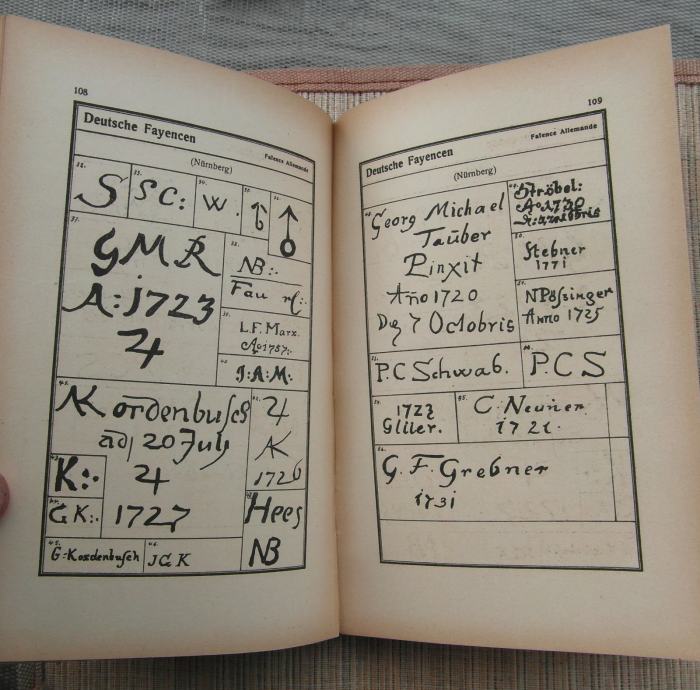 108
Deutsche Fayencen
Faience Allemande
(Nürnberg)
S
S C:
W.
G M R
A: 1723
4
NB:.
Fau
L.F. Marx.
Ao 1757:.
J:A:M:
AK ordenbusch
ad 20 July
4
1727
K:.
G K:.
G: Kordenbusch
JG K
4
AK
1726
Hees
NB
109
Deutsche Fayencen
Faience Allemande
(Nürnberg)
Georg Michael
Tauber
Pinxit
Año 1720
Dez 7 Octobris
Ströbel:
Ao 1730
Stebner
1771
N Pössinger
Anno 1725
P.C Schwab.
P.C S
1723
Glüer.
C. Neuner
1721.
G. F. Grebner
1731